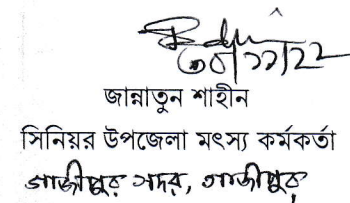 ৩০/১১/২২
জান্নাতুন শাহীন
সিনিয়র উপজেলা মৎস্য কর্মকর্তা
গাজীপুর সদর, গাজীপুর